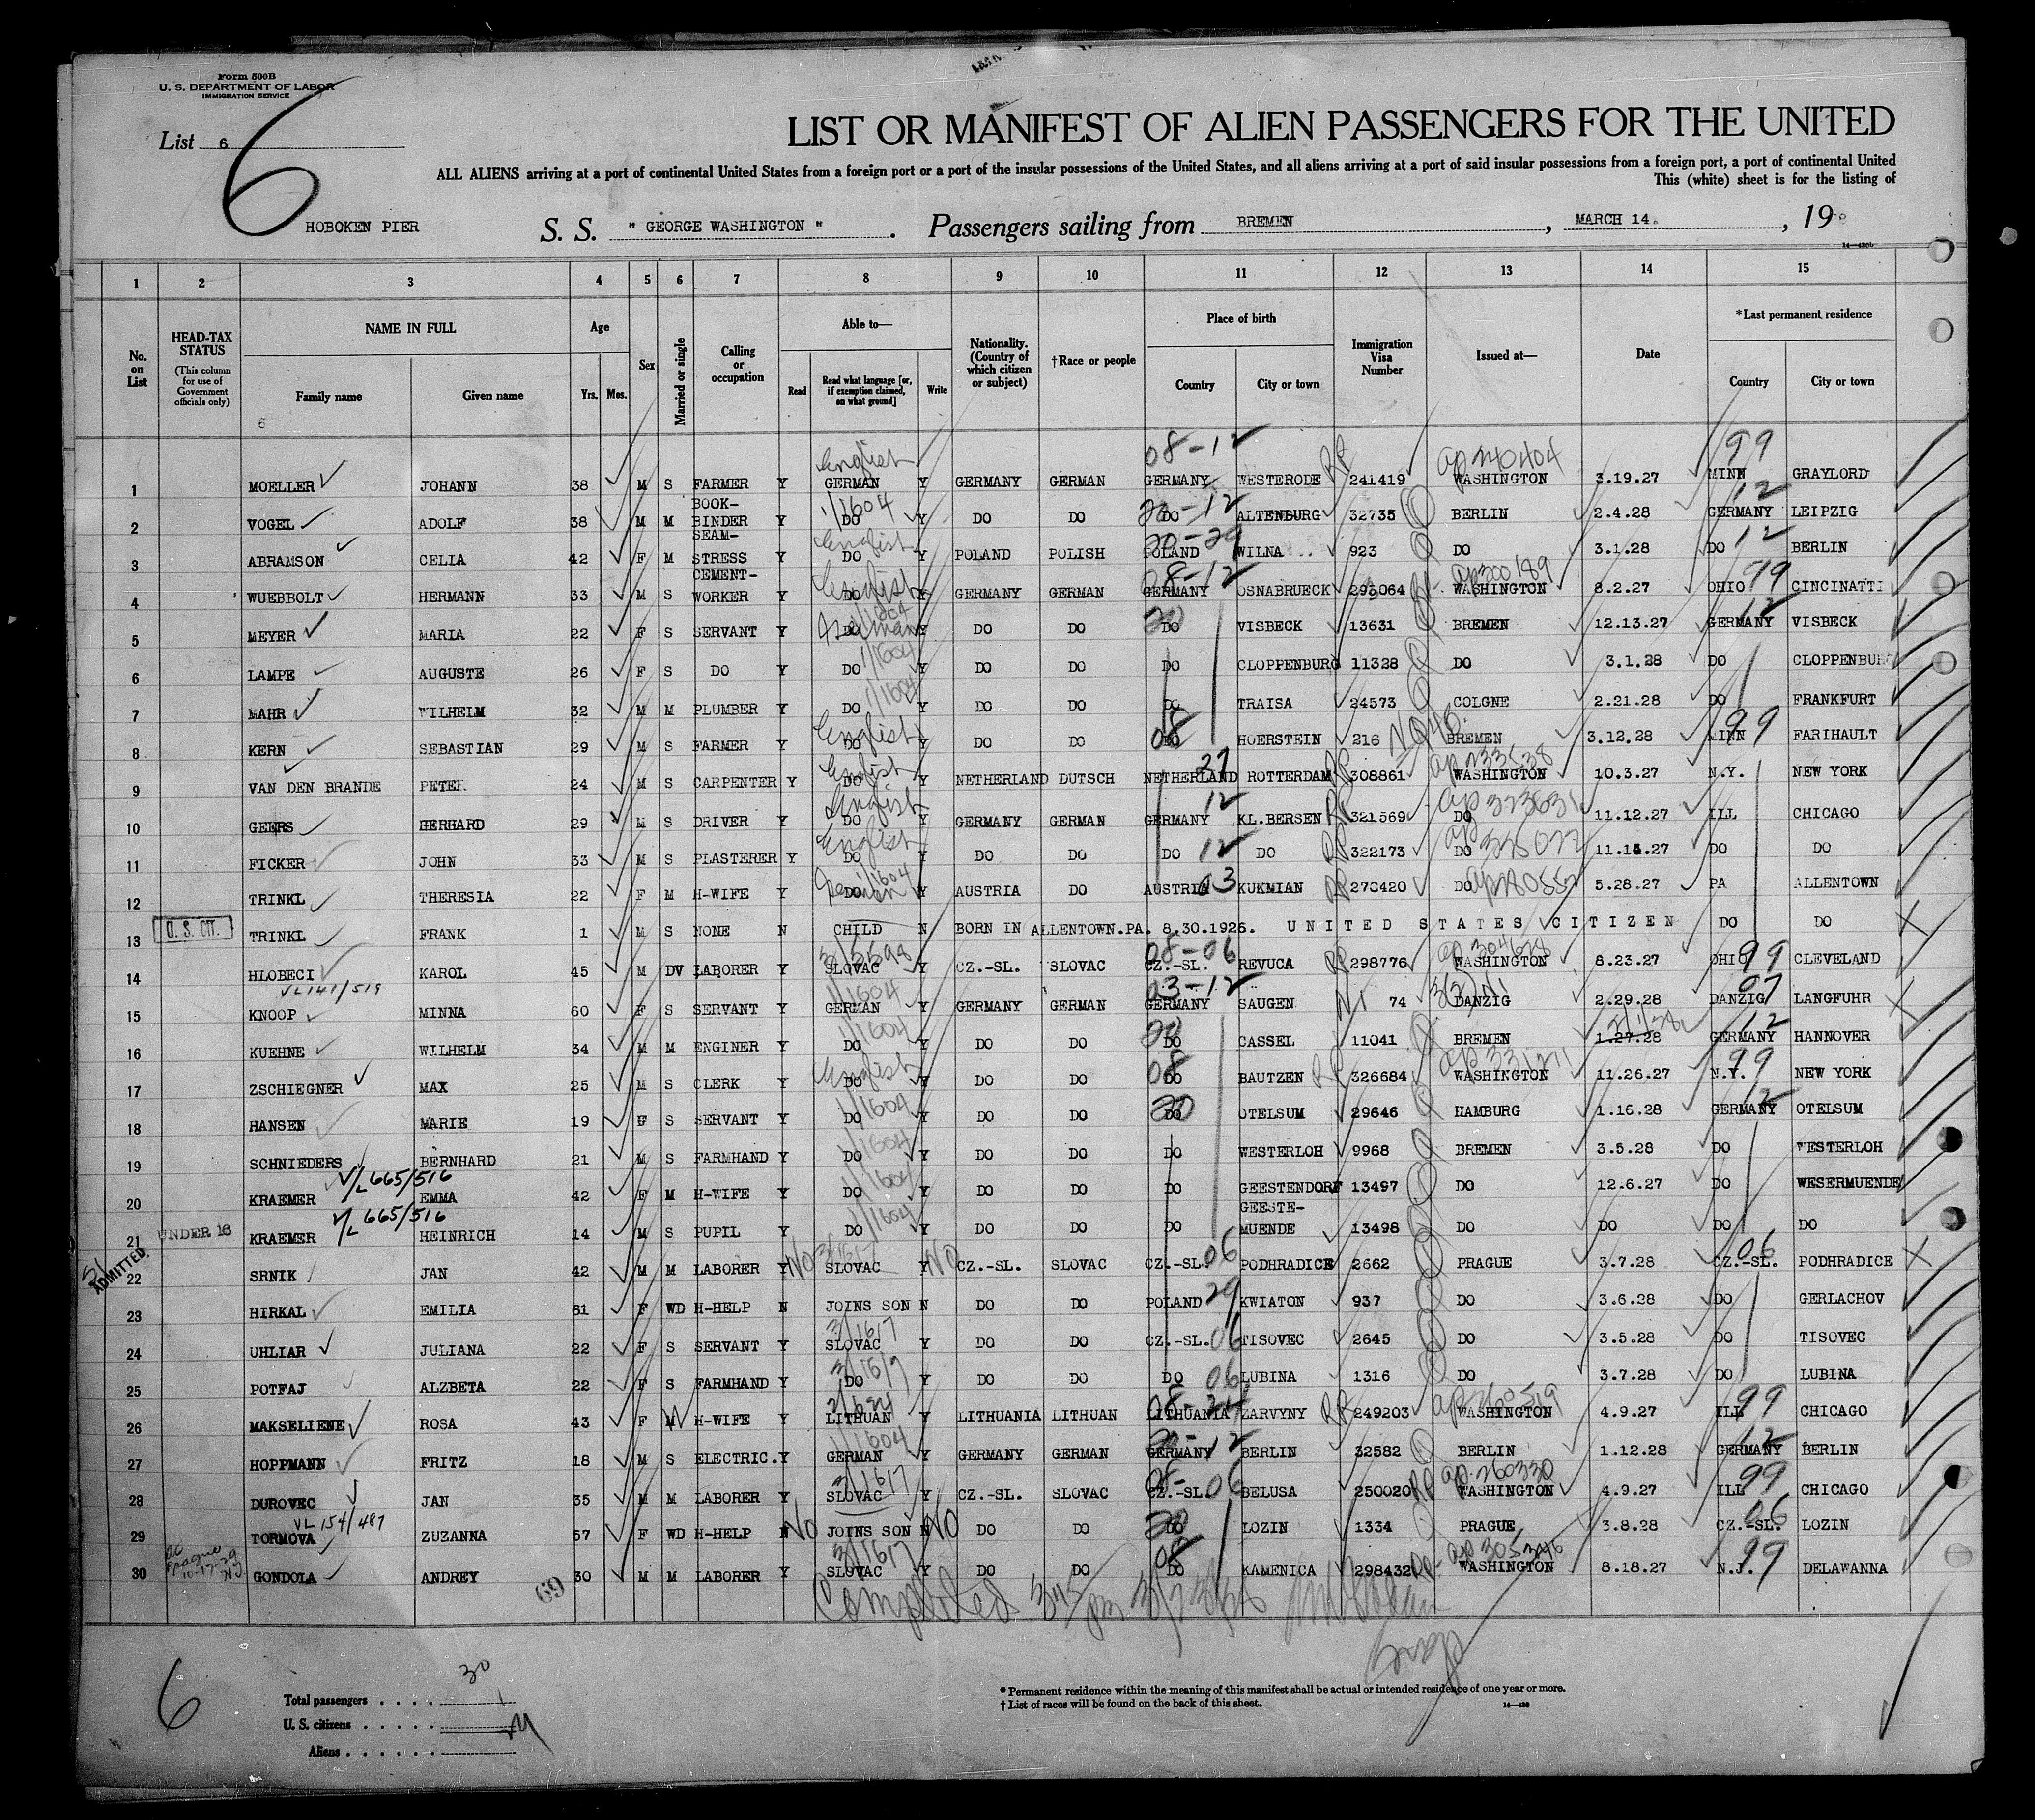 Form 500B
U. S. DEPARTMENT OF LABOR
IMMIGRATION SERVICE
List 6
6
LIST OR MANIFEST OF ALIEN PASSENGERS FOR THE UNITED
ALL ALIENS arriving at a port of continental United States from a foreign port or a port of the insular possessions of the United States, and all aliens arriving at a port of said insular possessions from a foreign port, a port of continental United
This (white) sheet is for the listing of
HOBOKEN PIER S. S. " GEORGE WASHINGTON ". Passengers sailing from BREMEN, MARCH 14., 19
14—430b
1 2 3 4 5 6 7 8 9 10 11 12 13 14 15
No. on List
HEAD-TAX STATUS (This column for use of Government officials only)
NAME IN FULL Family name Given name
Age Yrs. Mos.
Sex
Married or single
Calling or occupation
Able to— Read Read what language [or, if exemption claimed, on what ground] Write
Nationality. (Country of which citizen or subject)
†Race or people
Place of birth Country City or town
Immigration Visa Number
Issued at—
Date
*Last permanent residence Country City or town
6
08-12 99
1 MOELLER JOHANN 38 M S FARMER Y English GERMAN Y GERMANY GERMAN GERMANY WESTERODE RP 241419 ap 240404 WASHINGTON 3.19.27 MINN GRAYLORD
2 VOGEL ADOLF 38 M M BOOK-BINDER Y 1/1604 DO Y DO DO 20-12 DO ALTENBURG 32735 BERLIN 2.4.28 12 GERMANY LEIPZIG
3 ABRAMSON CELIA 42 F M SEAM-STRESS Y English DO Y POLAND POLISH 20-29 POLAND WILNA 923 DO 3.1.28 DO 12 BERLIN
4 WUEBBOLT HERMANN 33 M S CEMENT-WORKER Y English DO Y GERMANY GERMAN 08-12 GERMANY OSNABRUECK 293064 ap 300189 WASHINGTON 8.2.27 OHIO 99 CINCINATTI
5 MEYER MARIA 22 F S SERVANT Y 1/1604 German DO Y DO DO 20 DO VISBECK 13631 BREMEN 12.13.27 12 GERMANY VISBECK
6 LAMPE AUGUSTE 26 F S DO Y 1/1604 DO Y DO DO DO CLOPPENBURG 11328 DO 3.1.28 DO CLOPPENBUR
7 MAHR WILHELM 32 M M PLUMBER Y 1/1604 DO Y DO DO DO TRAISA 24573 COLGNE 2.21.28 DO FRANKFURT
8 KERN SEBASTIAN 29 M S FARMER Y English DO Y DO DO 08 DO HOERSTEIN 216 BREMEN 3.12.28 99 MINN FARIHAULT
9 VAN DEN BRANDE PETER 24 M S CARPENTER Y English DO Y NETHERLAND DUTSCH 27 NETHERLAND ROTTERDAM RP 308861 WASHINGTON 10.3.27 N.Y. NEW YORK
10 GEERS GERHARD 29 M S DRIVER Y English DO Y GERMANY GERMAN 12 GERMANY KL.BERSEN RP 321569 ap 323631 DO 11.12.27 ILL CHICAGO
11 FICKER JOHN 33 M S PLASTERER Y English DO Y DO DO DO 12 DO RP 322173 DO 11.15.27 DO DO
12 TRINKL THERESIA 22 F M H-WIFE Y 1/1604 German DO Y AUSTRIA DO AUSTRIA 03 KUKMIAN RP 270420 DO 5.28.27 PA ALLENTOWN
U. S. CIT.
13 TRINKL FRANK 1 M S NONE N CHILD N BORN IN ALLENTOWN.PA. 8.30.1926. UNITED STATES CITIZEN DO DO
14 HLOBECI KAROL 45 M DV LABORER Y SLOVAC Y CZ.-SL. SLOVAC 08-06 CZ.-SL. REVUCA RP 298776 ap 304678 WASHINGTON 8.23.27 OHIO 99 CLEVELAND
VL 141/519
15 KNOOP MINNA 60 F S SERVANT Y 1/1604 GERMAN Y GERMANY GERMAN 03-12 GERMANY SAUGEN 74 DANZIG 2.29.28 07 DANZIG LANGFUHR
16 KUEHNE WILHELM 34 M M ENGINER Y 1/1604 DO Y DO DO 20 DO CASSEL 11041 BREMEN 1.27.28 12 GERMANY HANNOVER
17 ZSCHIEGNER MAX 25 M S CLERK Y English DO Y DO DO 08 DO BAUTZEN RP 326684 ap 331271 WASHINGTON 11.26.27 99 N.Y. NEW YORK
18 HANSEN MARIE 19 F S SERVANT Y 1/1604 DO Y DO DO 20 DO OTELSUM 29646 HAMBURG 1.16.28 12 GERMANY OTELSUM
19 SCHNIEDERS BERNHARD 21 M S FARMHAND Y 1/1604 DO Y DO DO DO WESTERLOH 9968 BREMEN 3.5.28 DO WESTERLOH
V/L 665/516
20 KRAEMER EMMA 42 F M H-WIFE Y 1/1604 DO Y DO DO DO GEESTENDORF 13497 DO 12.6.27 DO WESERMUENDE
V/L 665/516
21 UNDER 16 KRAEMER HEINRICH 14 M S PUPIL Y 1/1604 DO Y DO DO DO GEESTE-MUENDE 13498 DO DO DO DO
ADMITTED
22 SRNIK JAN 42 M M LABORER Y No 3/1617 SLOVAC Y No CZ.-SL. SLOVAC CZ.-SL. 06 PODHRADICE 2662 PRAGUE 3.7.28 06 CZ.-SL. PODHRADICE
23 HIRKAL EMILIA 61 F WD H-HELP N JOINS SON N DO DO POLAND 29 KWIATON 937 DO 3.6.28 DO GERLACHOV
24 UHLIAR JULIANA 22 F S SERVANT Y 3/1617 SLOVAC Y DO DO CZ.-SL. 06 TISOVEC 2645 DO 3.5.28 DO TISOVEC
25 POTFAJ ALZBETA 22 F S FARMHAND Y 3/1617 DO Y DO DO DO 06 LUBINA 1316 DO 3.7.28 DO LUBINA
26 MAKSELIENE ROSA 43 F M H-WIFE Y LITHUAN Y LITHUANIA LITHUAN 08-24 LITHUANIA ZARVYNY RP 249203 ap 260519 WASHINGTON 4.9.27 99 ILL CHICAGO
27 HOPPMANN FRITZ 18 M S ELECTRIC. Y 1/1604 GERMAN Y GERMANY GERMAN 20-12 GERMANY BERLIN 32582 BERLIN 1.12.28 12 GERMANY BERLIN
28 DUROVEC JAN 35 M M LABORER Y 3/1617 SLOVAC Y CZ.-SL. SLOVAC 08- CZ.-SL. 06 BELUSA 250020 RP ap. 260330 WASHINGTON 4.9.27 99 ILL CHICAGO
VL 154/487
29 TORMOVA ZUZANNA 57 F WD H-HELP N No JOINS SON N No DO DO 20 DO LOZIN 1334 PRAGUE 3.8.28 06 CZ.-SL. LOZIN
30 Prague 10-17-29 N.Y. GONDOLA ANDREY 30 M M LABORER Y 3/1617 SLOVAC Y DO DO 08 DO KAMENICA 298432 RP- ap 305346 WASHINGTON 8.18.27 99 N.J. DELAWANNA
69
Completed
6
Total passengers . . . . 30
U. S. citizens . . . . . 1
Aliens . . . . . .
* Permanent residence within the meaning of this manifest shall be actual or intended residence of one year or more.
† List of races will be found on the back of this sheet.
14—430